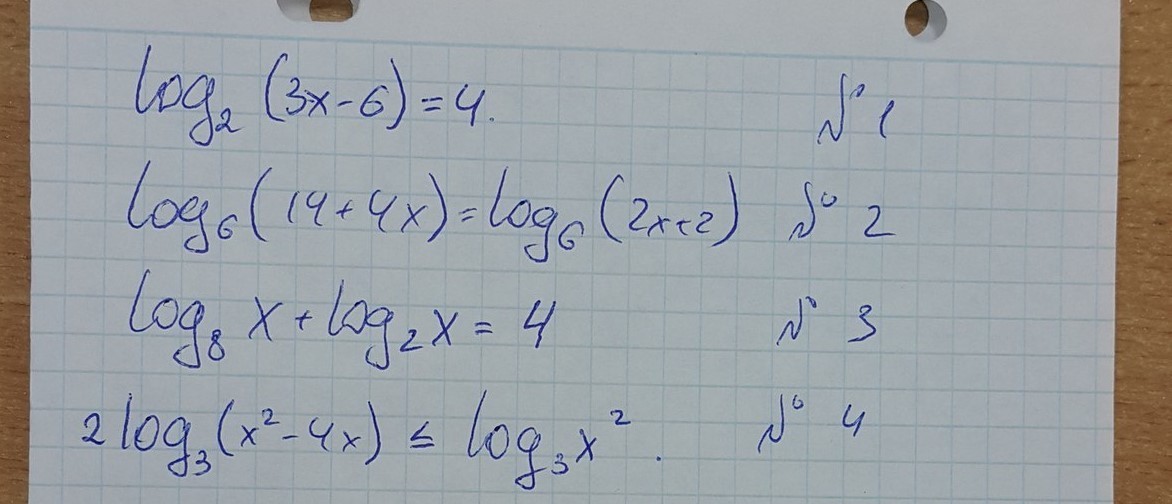 log₂ (3x-6) = 4. № 1
log₆ (14+4x) = log₆ (2x+2) № 2
log₈ x + log₂ x = 4 № 3
2 log₃ (x²-4x) ≤ log₃ x². № 4